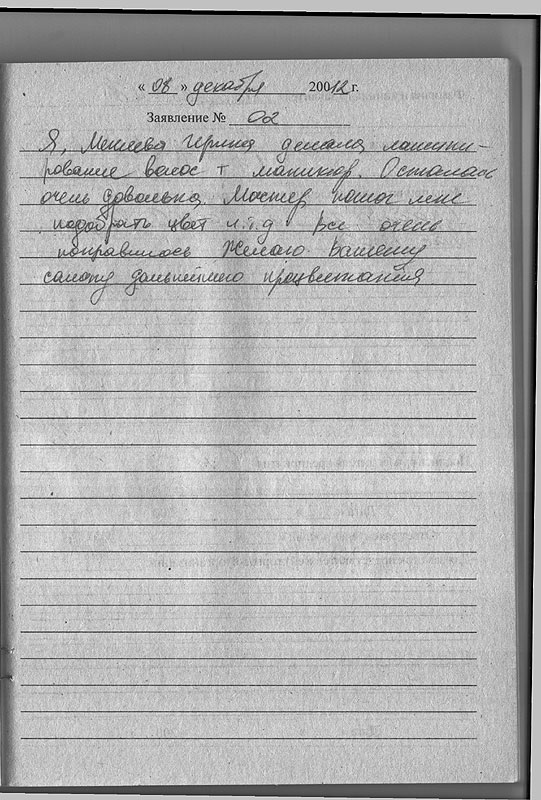 « 08 » декабря 20012 г.
Заявление № 02
Я, Ирина делала ламини-
рование волос + маникюр. Осталась
очень довольна. Мастер помог мне
подобрать цвет и.т.д Все очень
понравилось Желаю Вашему
салону дальнейшего процветания